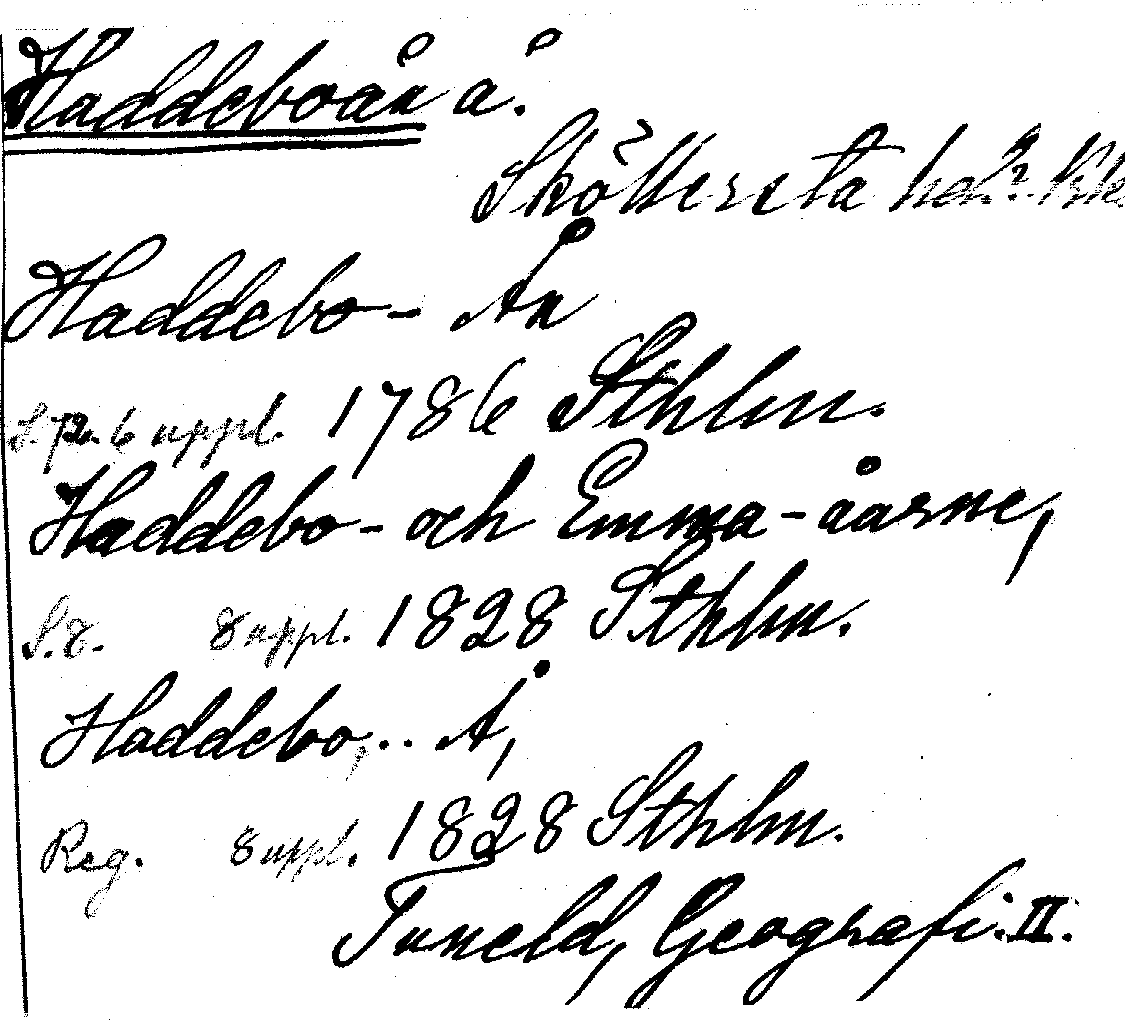 Haddeboån å.
Sköllersta hd
Haddebo- Ån
6 uppl. 1786 Sthlm.
Haddebo- och Emma-åarne,
S. 8. 8 uppl. 1828 Sthlm.
Haddebo, .. Å,
Reg. 8 uppl. 1828 Sthlm.
Tuneld, Geografi. II.